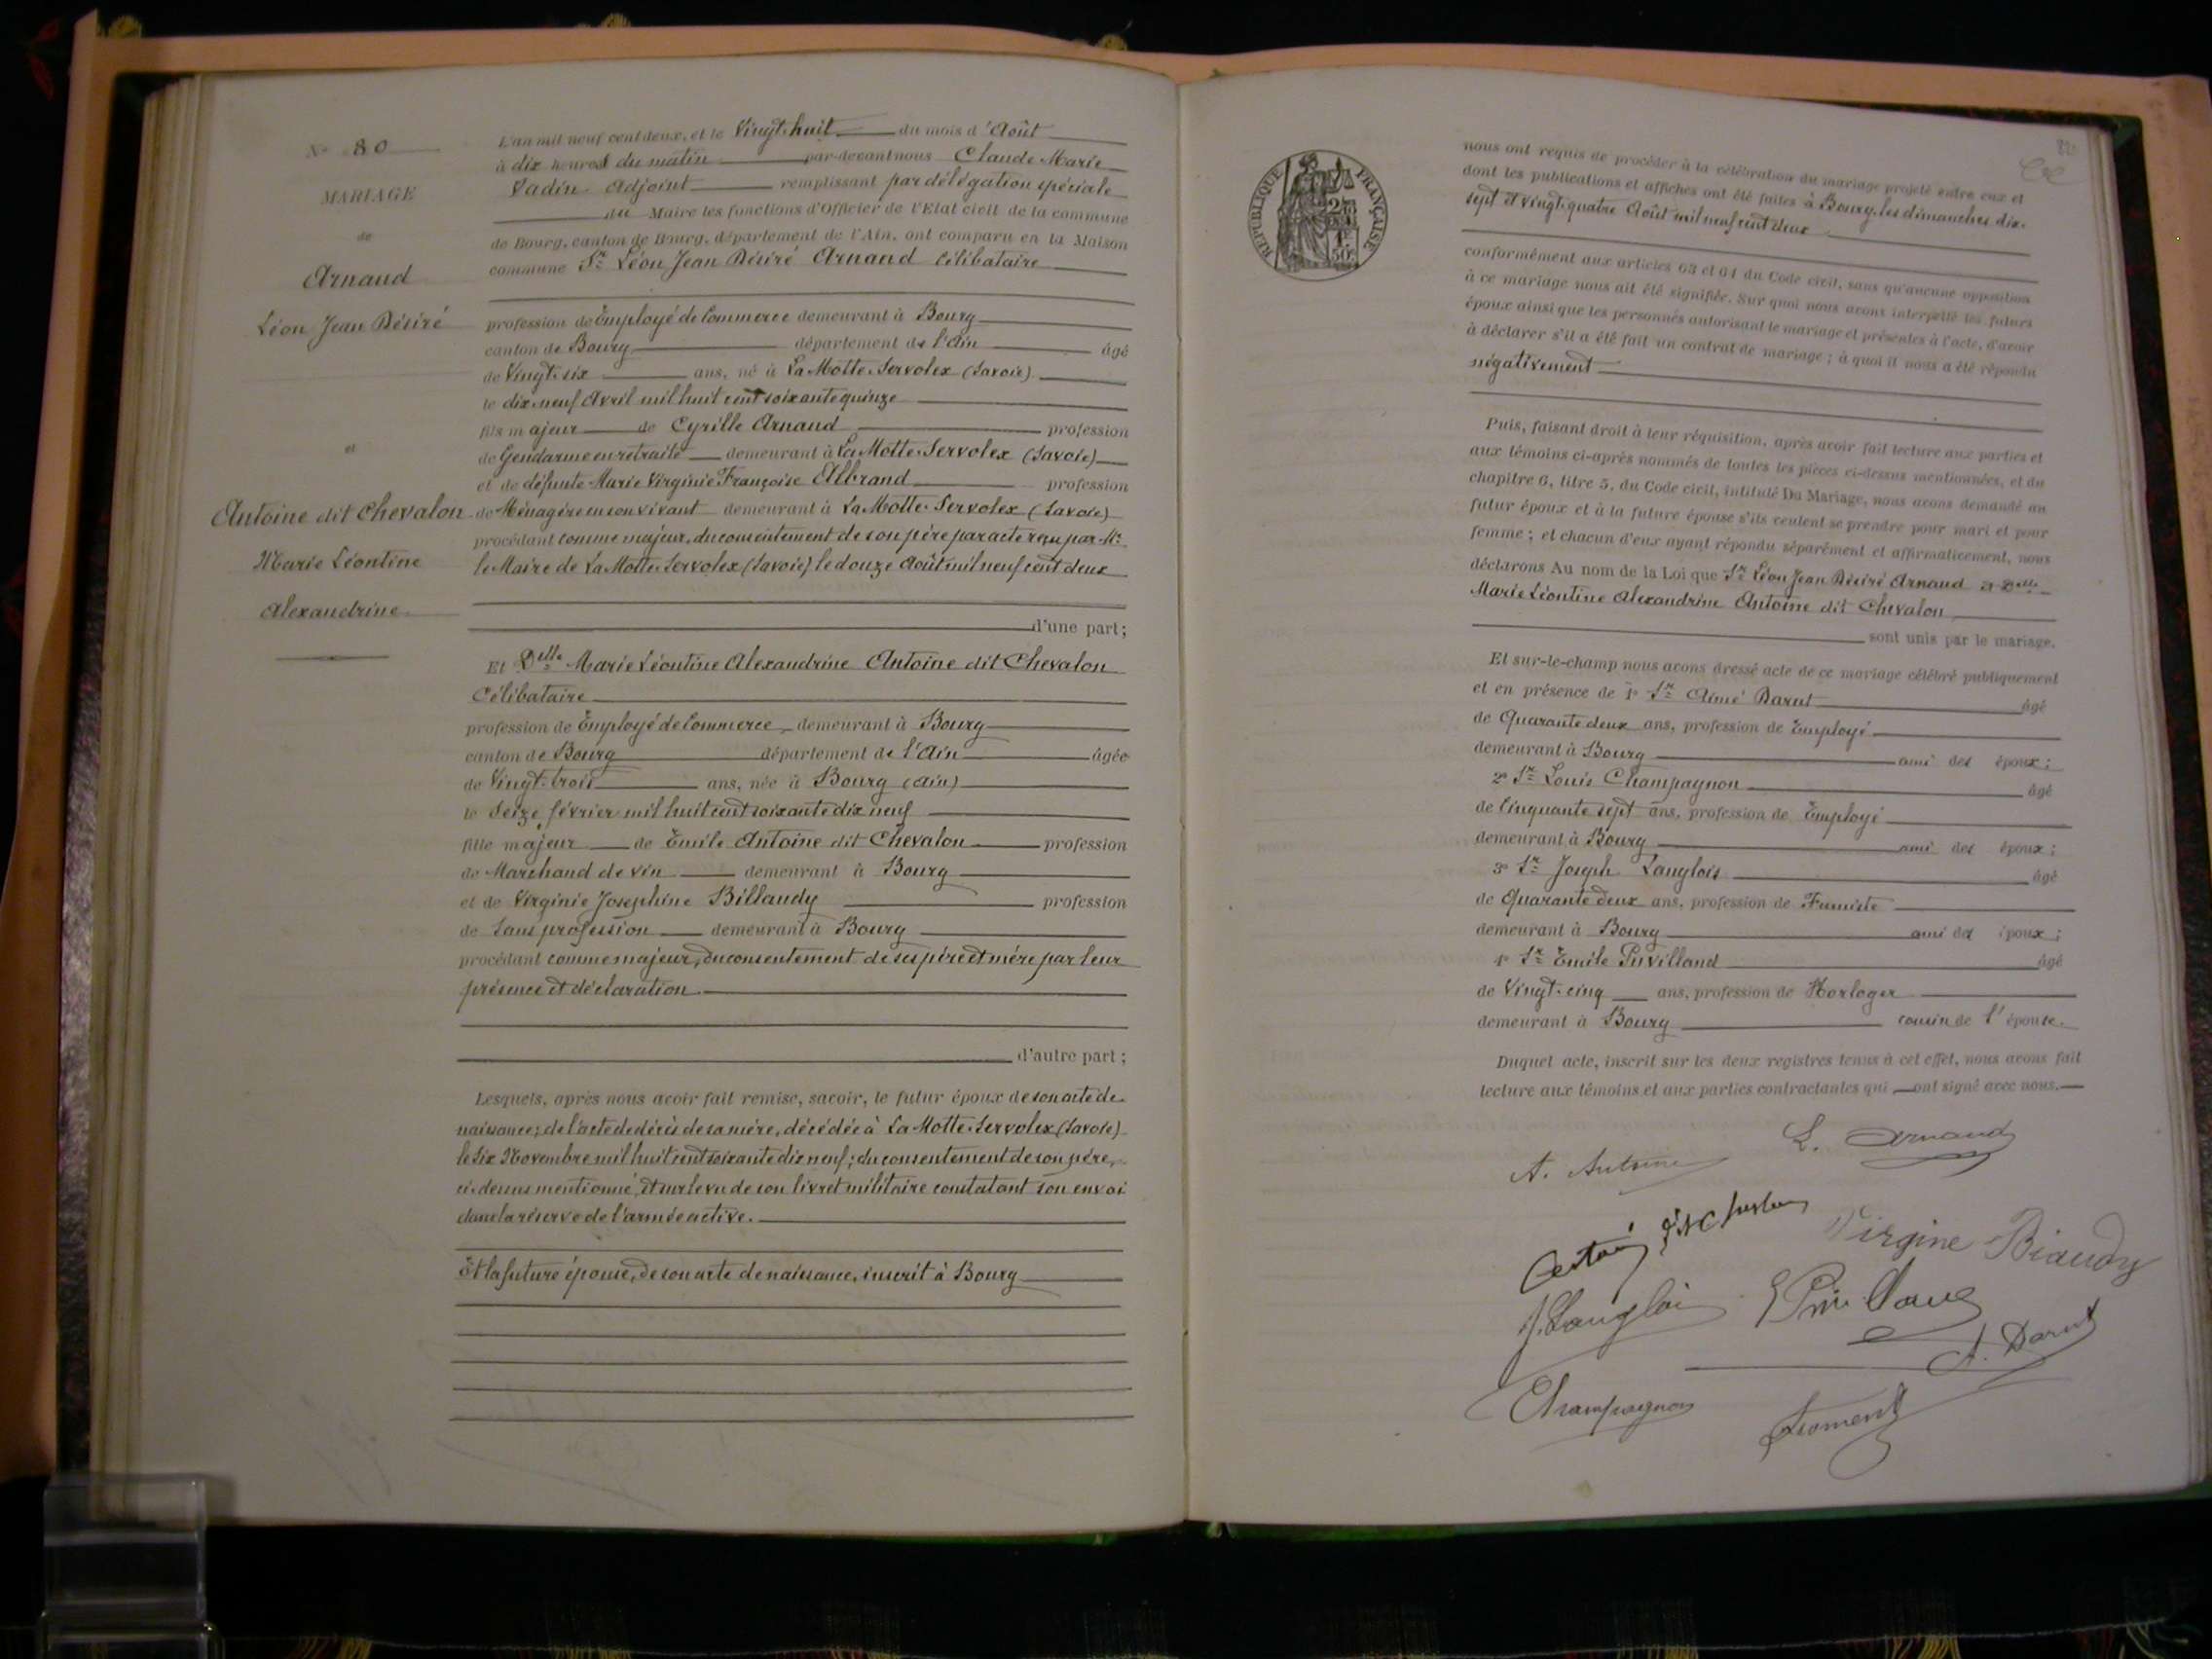 N° 80
MARIAGE
de
Arnaud
Léon Jean Désiré
et
Antoine dit Chevalon
Marie Léontine
Alexandrine
L'an mil neuf cent deux, et le Vingt-huit du mois d'Août
à dix heures du matin par-devant nous Claude Marie
Vadin Adjoint remplissant par délégation spéciale
du Maire les fonctions d'Officier de l'Etat civil de la commune
de Bourg, canton de Bourg, département de l'Ain, ont comparu en la Maison
commune Sr Léon Jean Désiré Arnaud célibataire
profession de Employé de Commerce demeurant à Bourg
canton de Bourg département de l'Ain âgé
de Vingt-six ans, né à La Motte-Servolex (Savoie)
le dix-neuf Avril mil huit cent soixante quinze
fils majeur de Cyrille Arnaud profession
de Gendarme en retraite demeurant à La Motte-Servolex (Savoie)
et de défunte Marie Virginie Françoise Albrand profession
de Ménagère en son vivant demeurant à La Motte-Servolex (Savoie)
procédant comme majeur, du consentement de son père par acte reçu par Mr
le Maire de La Motte-Servolex (Savoie), le douze Août mil neuf cent deux
d'une part;
Et Delle Marie Léontine Alexandrine Antoine dit Chevalon
Célibataire
profession de Employé de Commerce demeurant à Bourg
canton de Bourg département de l'Ain âgée
de Vingt-trois ans, née à Bourg (Ain)
le Seize février mil huit cent soixante dix neuf
fille majeur de Emile Antoine dit Chevalon profession
de Marchand de vin demeurant à Bourg
et de Virginie Josephine Billaudy profession
de Sans profession demeurant à Bourg
procédant comme majeur, du consentement de ses père et mère par leur
présence et déclaration.
d'autre part;
Lesquels, après nous avoir fait remise, savoir, le futur époux de son acte de
naissance; de l'acte de décès de sa mère, décédée à La Motte-Servolex (Savoie)
le Six Novembre mil huit cent soixante dix neuf; du consentement de son père,
ci-dessus mentionné, et sur le vu de son livret militaire constatant son envoi
dans la réserve de l'armée active.
Et la future épouse, de son acte de naissance, inscrit à Bourg
REPUBLIQUE FRANÇAISE
nous ont requis de procéder à la célébration du mariage projeté entre eux et
dont les publications et affiches ont été faites à Bourg, les dimanches dix-
sept et vingt quatre Août mil neuf cent deux
conformément aux articles 63 et 64 du Code civil, sans qu'aucune opposition
à ce mariage nous ait été signifiée. Sur quoi nous avons interpellé les futurs
époux ainsi que les personnes autorisant le mariage et présentes à l'acte, d'avoir
à déclarer s'il a été fait un contrat de mariage; à quoi il nous a été répondu
négativement
Puis, faisant droit à leur réquisition, après avoir fait lecture aux parties et
aux témoins ci-après nommés de toutes les pièces ci-dessus mentionnées, et du
chapitre 6, titre 5, du Code civil, intitulé Du Mariage, nous avons demandé au
futur époux et à la future épouse s'ils veulent se prendre pour mari et pour
femme; et chacun d'eux ayant répondu séparément et affirmativement, nous
déclarons Au nom de la Loi que Sr Léon Jean Désiré Arnaud et Delle
Marie Léontine Alexandrine Antoine dit Chevalon
sont unis par le mariage.
Et sur-le-champ nous avons dressé acte de ce mariage célébré publiquement
et en présence de 1° Sr Aimé Darut âgé
de Quarante deux ans, profession de Employé
demeurant à Bourg ami des époux;
2° Sr Louis Champagnon âgé
de Cinquante sept ans, profession de Employé
demeurant à Bourg ami des époux;
3° Sr Joseph Langlois âgé
de Quarante deux ans, profession de Fumiste
demeurant à Bourg ami des époux;
4° Sr Emile Puvilland âgé
de Vingt-cinq ans, profession de Horloger
demeurant à Bourg cousin de l'épouse.
Duquel acte, inscrit sur les deux registres tenus à cet effet, nous avons fait
lecture aux témoins et aux parties contractantes qui ont signé avec nous.
A. Antoine L. Arnaud
Virgine Biaudy
J. Langlois
A. Darut
Champagnon